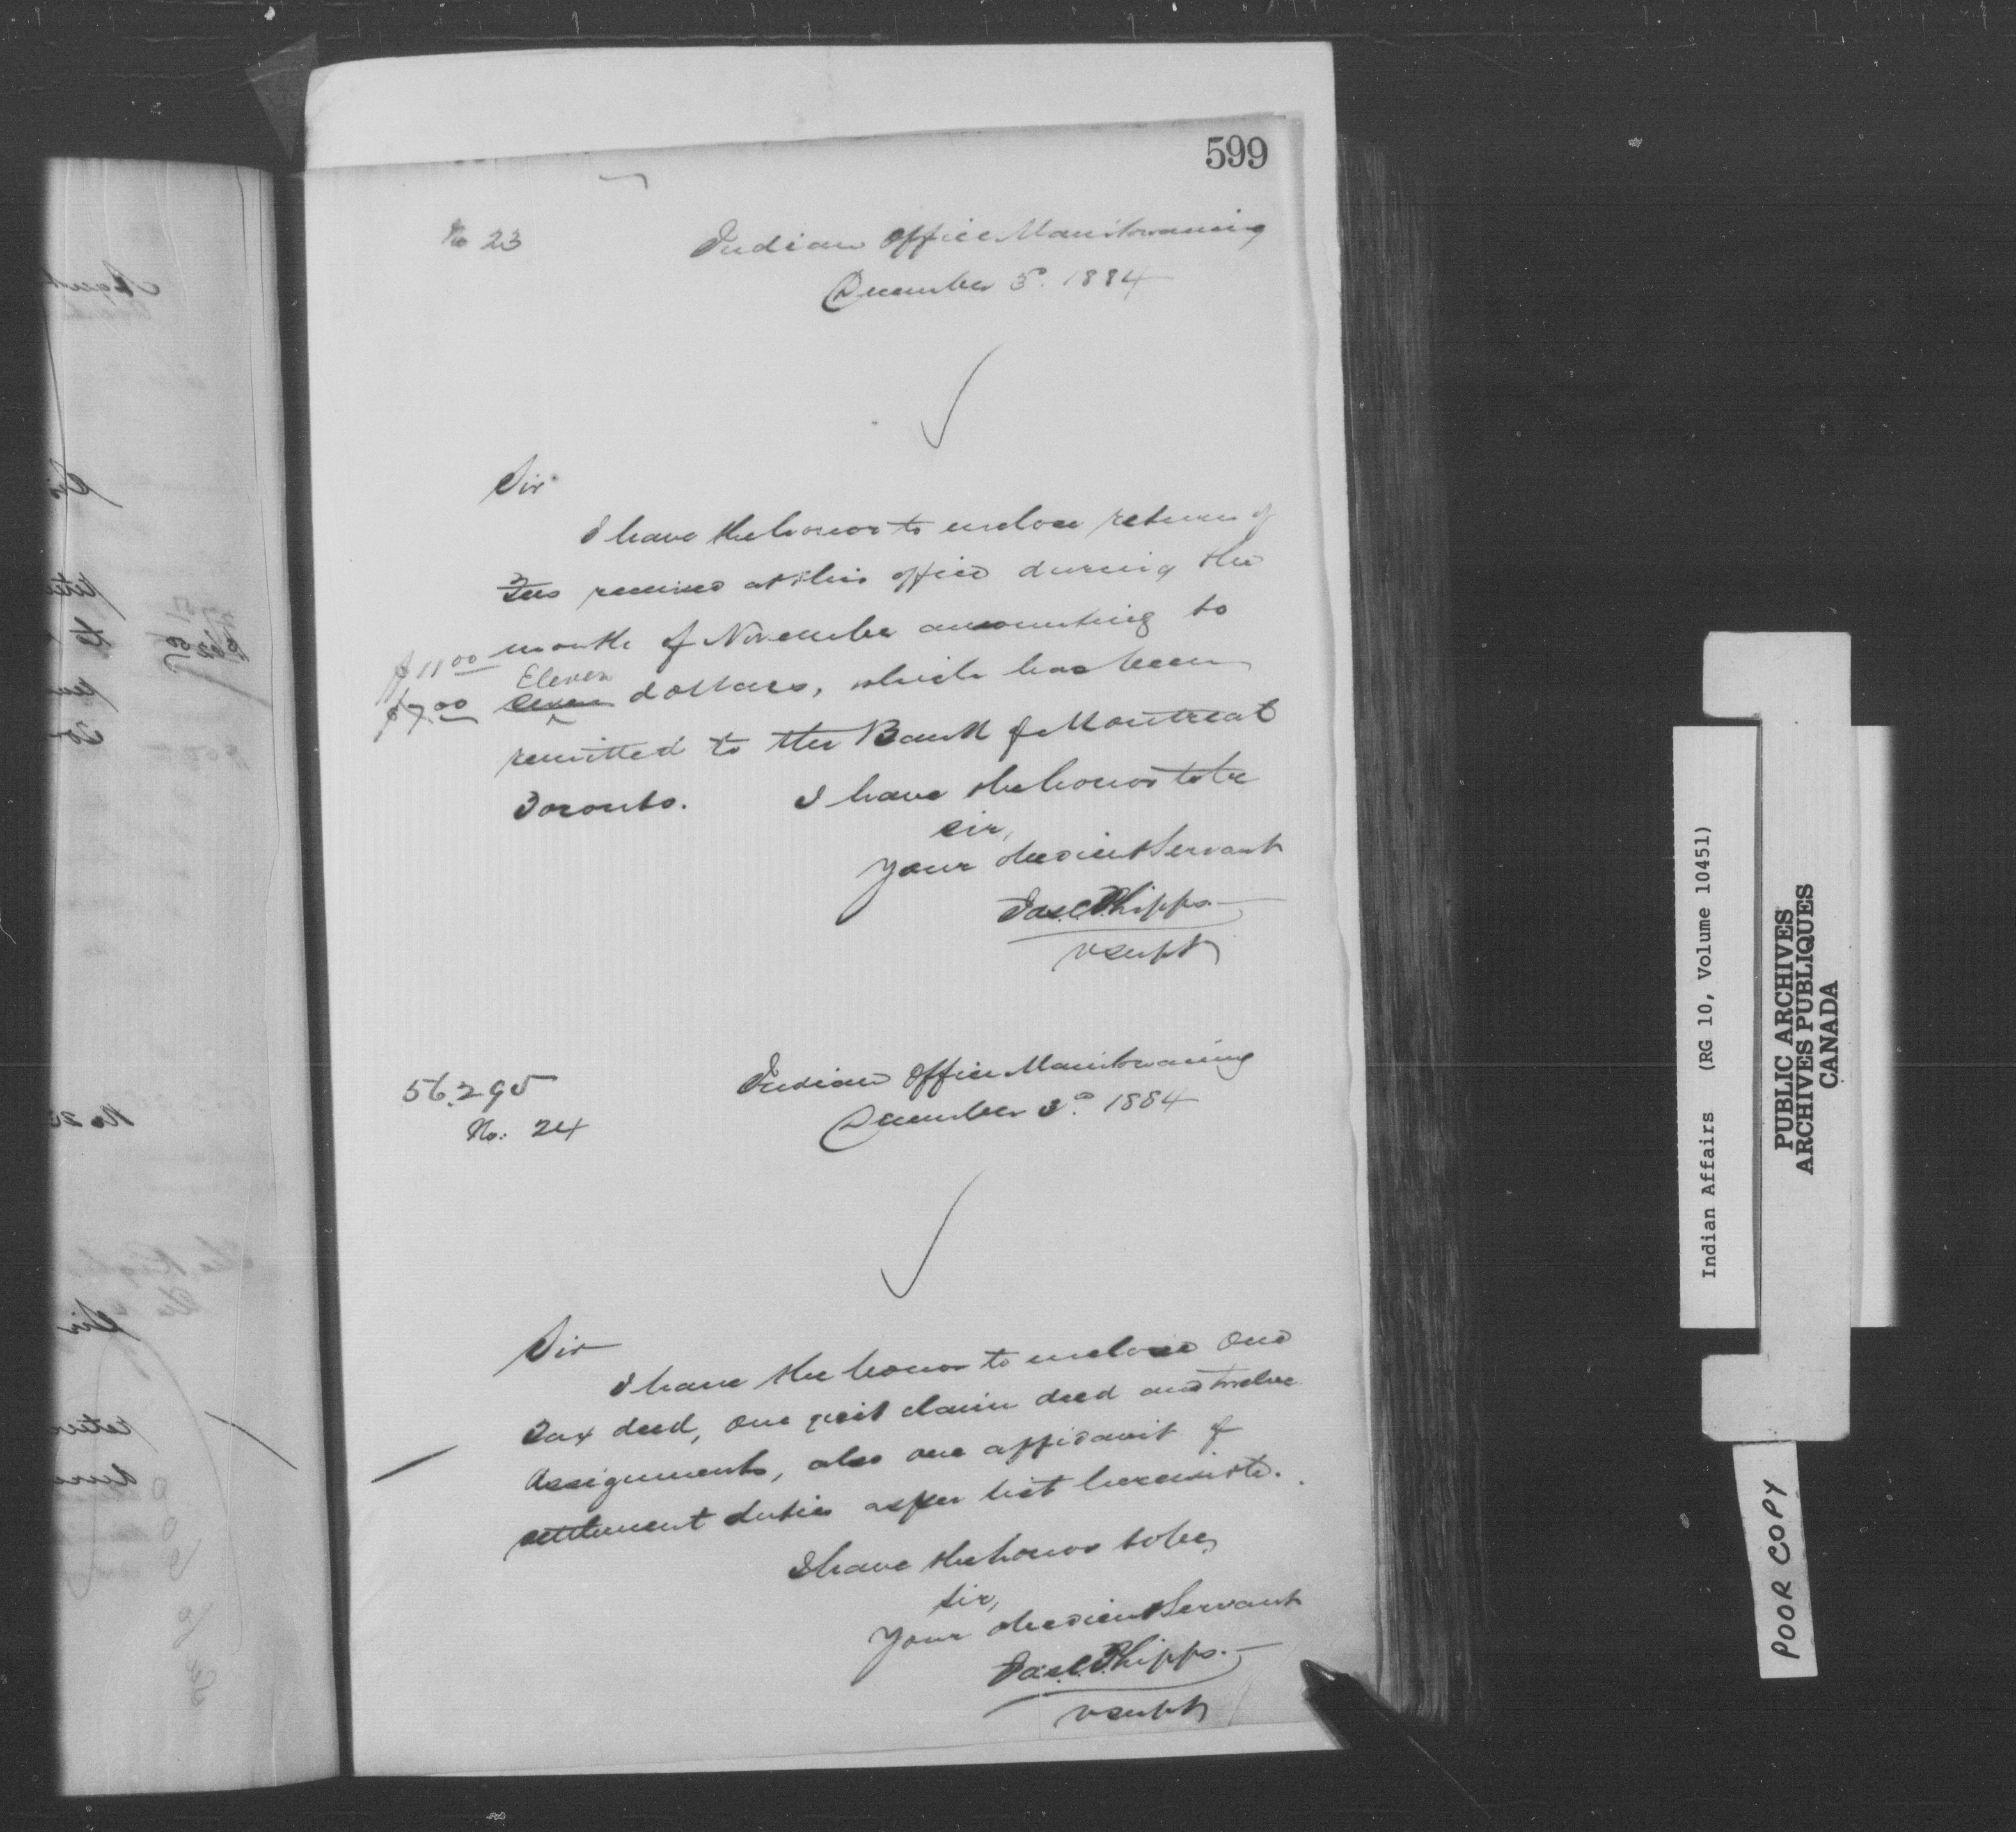 599
No 23
Indian Office Manitowaning
December 3d. 1884
Sir
I have the honor to enclose return of
Fees received at this office during the
$11 00 month of November amounting to
Eleven
$7.00 seven dollars, which has been
remitted to the Bank of Montreal
Toronto. I have the honor to be
sir,
Your obedient Servant
Jas. C. Phipps.
V Supt
56.295
No. 24
Indian Office Manitowaning
December 3d. 1884
Sir
I have the honor to enclose One
Tax deed, One quit claim deed and twelve
Assignments, also one affidavit of
settlement duties as per list herewith.
I have the honor to be,
Sir,
Your obedient Servant
Jas. C. Phipps.
V Supt
Indian Affairs (RG 10, Volume 10451)
PUBLIC ARCHIVES
ARCHIVES PUBLIQUES
CANADA
POOR COPY